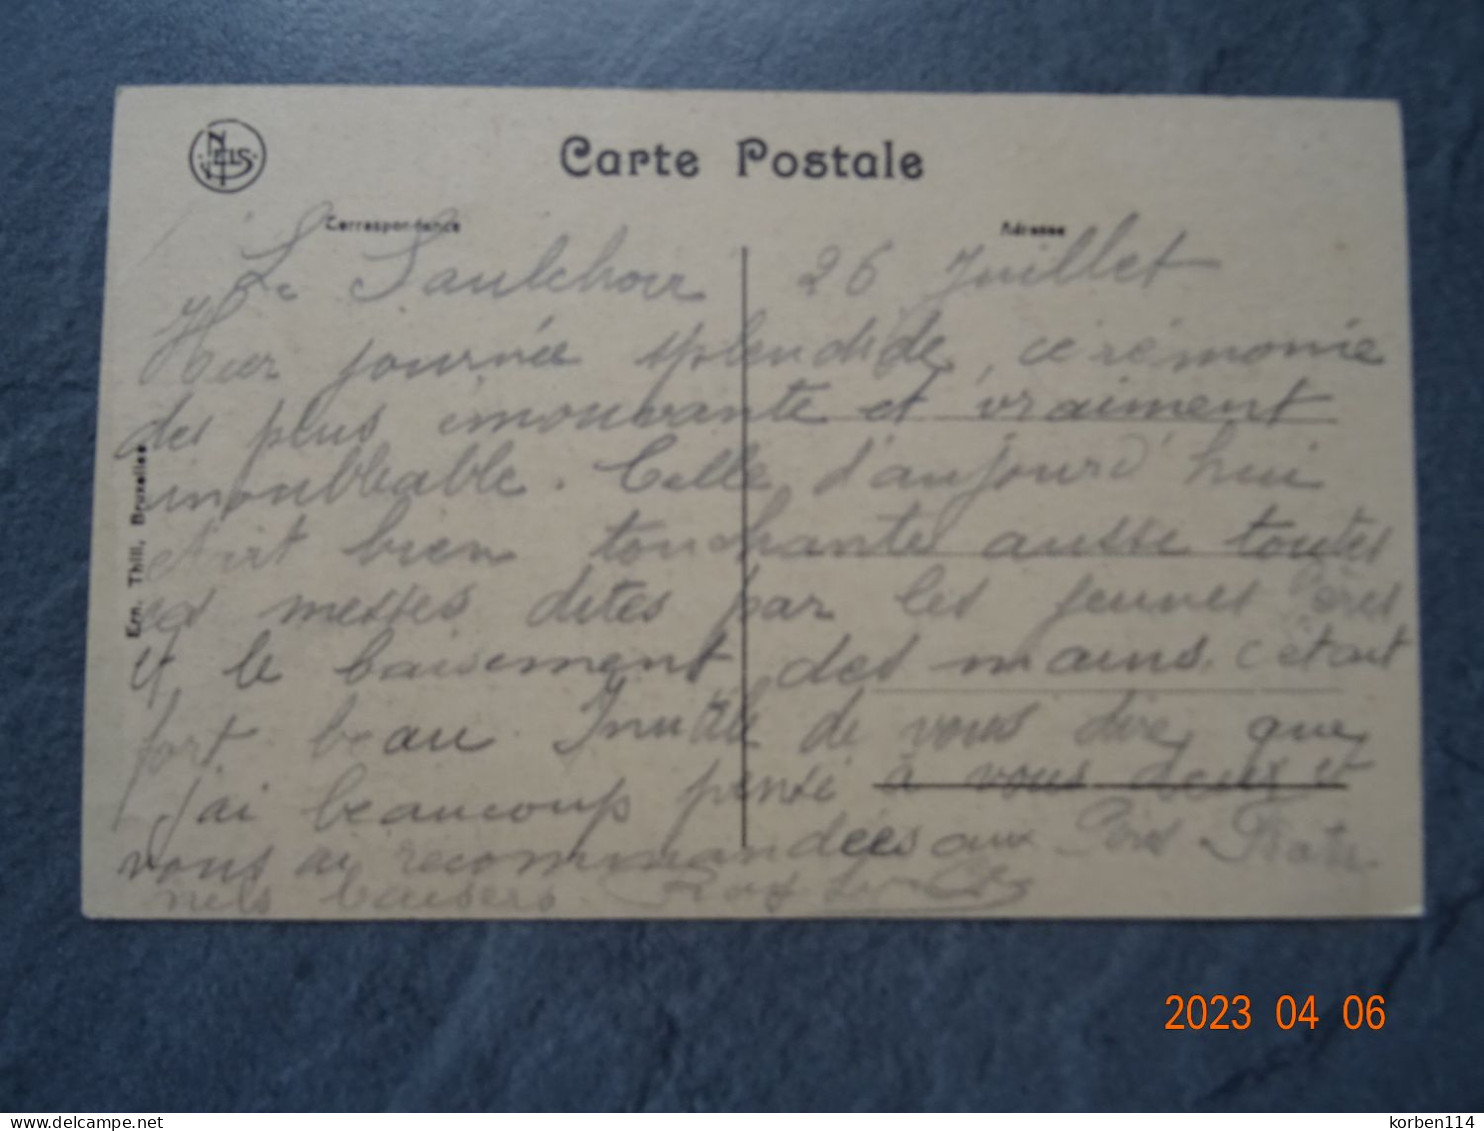 NELS
Carte Postale
Correspondance
Adresse
Le Saulchoir 26 Juillet
Hier journée splendide, cérémonie
des plus émouvante et vraiment
inoubliable. Celle d'aujourd'hui
était bien touchante aussi toutes
ces messes dites par les jeunes Pères
et le baisement des mains, c'était
fort beau. Inutile de vous dire que
j'ai beaucoup pensé à vous deux et
vous ai recommandées aux Pères. Frater
nels baisers
Ern. Thill, Bruxelles
2023 04 06
delcampe.net
korben114